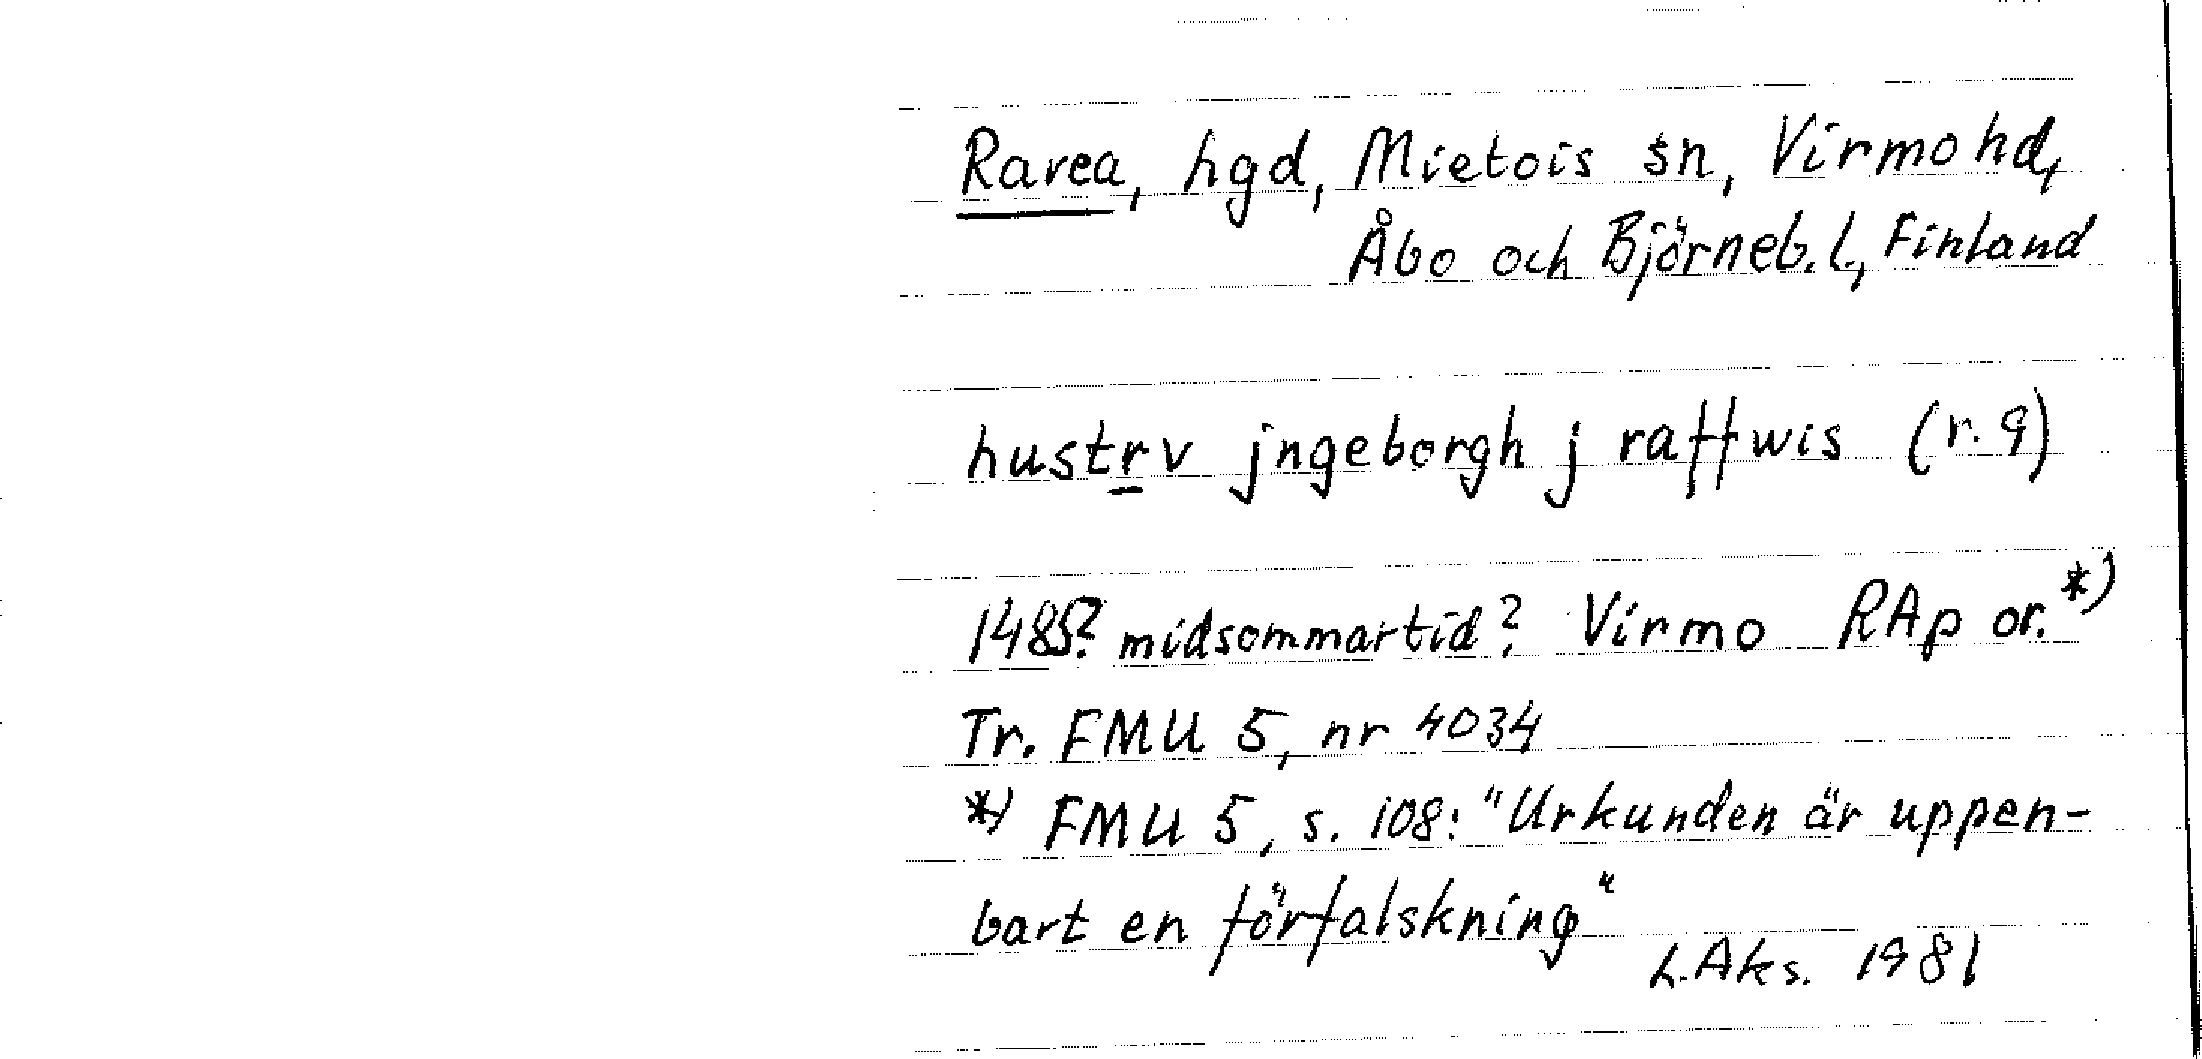 Ravea, hgd, Mietois sn, Virmo hd,
Åbo och Björneb. l., Finland
hustrv jngeborgh j raffwis (r. 9)
1485? midsommartid? Virmo RAp or. *)
Tr. FMU 5, nr 4034
*) FMU 5, s. 108: "Urkunden är uppen-
bart en förfalskning"
L. Aks. 1981